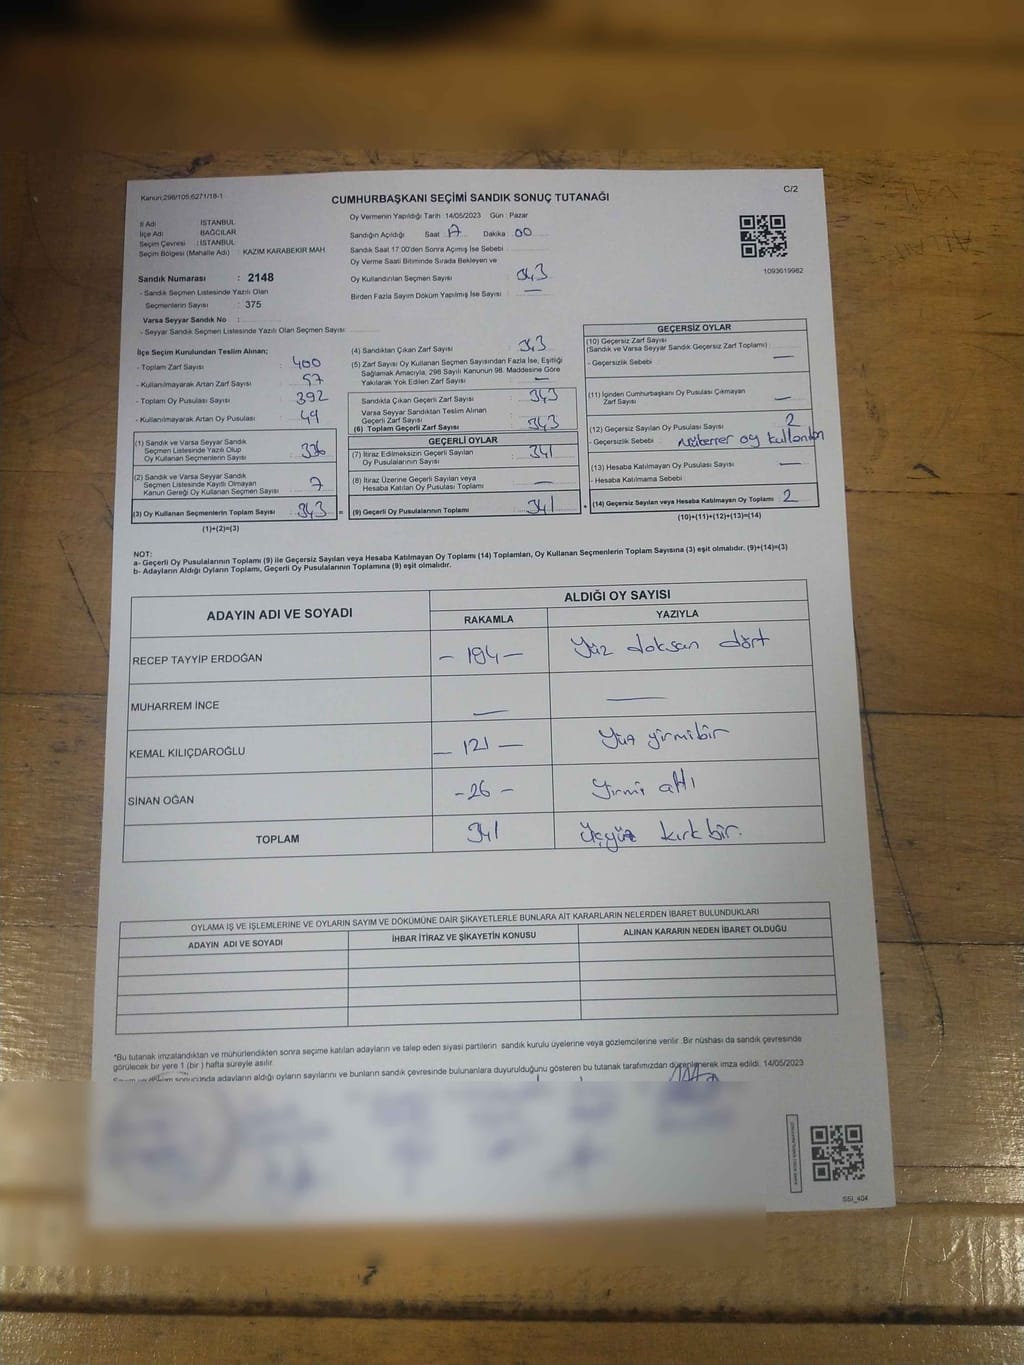 Kanun:298/105;6271/18-1
C/2
CUMHURBAŞKANI SEÇİMİ SANDIK SONUÇ TUTANAĞI
İl Adı İSTANBUL
İlçe Adı BAĞCILAR
Seçim Çevresi : İSTANBUL
Seçim Bölgesi (Mahalle Adı) KAZIM KARABEKİR MAH
Sandık Numarası : 2148
- Sandık Seçmen Listesinde Yazılı Olan
Seçmenlerin Sayısı : 375
Varsa Seyyar Sandık No :
- Seyyar Sandık Seçmen Listesinde Yazılı Olan Seçmen Sayısı:
Oy Vermenin Yapıldığı Tarih : 14/05/2023 Gün : Pazar
Sandığın Açıldığı Saat 17 Dakika 00
Sandık Saat 17.00'den Sonra Açımış İse Sebebi
Oy Verme Saati Bitiminde Sırada Bekleyen ve
Oy Kullandırılan Seçmen Sayısı : 343
Birden Fazla Sayım Döküm Yapılmış İse Sayısı : —
1093619982
İlçe Seçim Kurulundan Teslim Alınan;
- Toplam Zarf Sayısı : 400
- Kullanılmayarak Artan Zarf Sayısı : 57
- Toplam Oy Pusulası Sayısı : 392
- Kullanılmayarak Artan Oy Pusulası : 49
(1) Sandık ve Varsa Seyyar Sandık
Seçmen Listesinde Yazılı Olup
Oy Kullanan Seçmenlerin Sayısı : 336
(2) Sandık ve Varsa Seyyar Sandık
Seçmen Listesinde Kayıtlı Olmayan
Kanun Gereği Oy Kullanan Seçmen Sayısı : 7
(3) Oy Kullanan Seçmenlerin Toplam Sayısı : 343 =
(1)+(2)=(3)
(4) Sandıktan Çıkan Zarf Sayısı : 343
(5) Zarf Sayısı Oy Kullanan Seçmen Sayısından Fazla İse, Eşitliği
Sağlamak Amacıyla, 298 Sayılı Kanunun 98. Maddesine Göre
Yakılarak Yok Edilen Zarf Sayısı : —
Sandıkta Çıkan Geçerli Zarf Sayısı : 343
Varsa Seyyar Sandıktan Teslim Alınan
Geçerli Zarf Sayısı
(6) Toplam Geçerli Zarf Sayısı : 343
GEÇERLİ OYLAR
(7) İtiraz Edilmeksizin Geçerli Sayılan
Oy Pusulalarının Sayısı : 341
(8) İtiraz Üzerine Geçerli Sayılan veya
Hesaba Katılan Oy Pusulası Toplamı : —
(9) Geçerli Oy Pusulalarının Toplamı : 341 +
GEÇERSİZ OYLAR
(10) Geçersiz Zarf Sayısı
(Sandık ve Varsa Seyyar Sandık Geçersiz Zarf Toplamı) :
- Geçersizlik Sebebi : —
(11) İçinden Cumhurbaşkanı Oy Pusulası Çıkmayan
Zarf Sayısı : —
(12) Geçersiz Sayılan Oy Pusulası Sayısı : 2
- Geçersizlik Sebebi : Müberrer oy kullanılan
(13) Hesaba Katılmayan Oy Pusulası Sayısı : —
- Hesaba Katılmama Sebebi :
(14) Geçersiz Sayılan veya Hesaba Katılmayan Oy Toplamı : 2
(10)+(11)+(12)+(13)=(14)
NOT:
a- Geçerli Oy Pusulalarının Toplamı (9) ile Geçersiz Sayılan veya Hesaba Katılmayan Oy Toplamı (14) Toplamları, Oy Kullanan Seçmenlerin Toplam Sayısına (3) eşit olmalıdır. (9)+(14)=(3)
b- Adayların Aldığı Oyların Toplamı, Geçerli Oy Pusulalarının Toplamına (9) eşit olmalıdır.
ADAYIN ADI VE SOYADI ALDIĞI OY SAYISI
RAKAMLA YAZIYLA
RECEP TAYYİP ERDOĞAN — 194 — Yüz doksan dört
MUHARREM İNCE — —
KEMAL KILIÇDAROĞLU — 121 — Yüz yirmibir
SİNAN OĞAN - 26 - Yirmi altı
TOPLAM 341 Üçyüz kırk bir.
OYLAMA İŞ VE İŞLEMLERİNE VE OYLARIN SAYIM VE DÖKÜMÜNE DAİR ŞİKAYETLERLE BUNLARA AİT KARARLARIN NELERDEN İBARET BULUNDUKLARI
ADAYIN ADI VE SOYADI İHBAR İTİRAZ VE ŞİKAYETİN KONUSU ALINAN KARARIN NEDEN İBARET OLDUĞU
*Bu tutanak imzalandıktan ve mühürlendikten sonra seçime katılan adayların ve talep eden siyasi partilerin sandık kurulu üyelerine veya gözlemcilerine verilir .Bir nüshası da sandık çevresinde
görülecek bir yere 1 (bir ) hafta süreyle asılır.
Sayım ve döküm sonucunda adayların aldığı oyların sayılarını ve bunların sandık çevresinde bulunanlara duyurulduğunu gösteren bu tutanak tarafımızdan düzenlenerek imza edildi. 14/05/2023
SSI_404